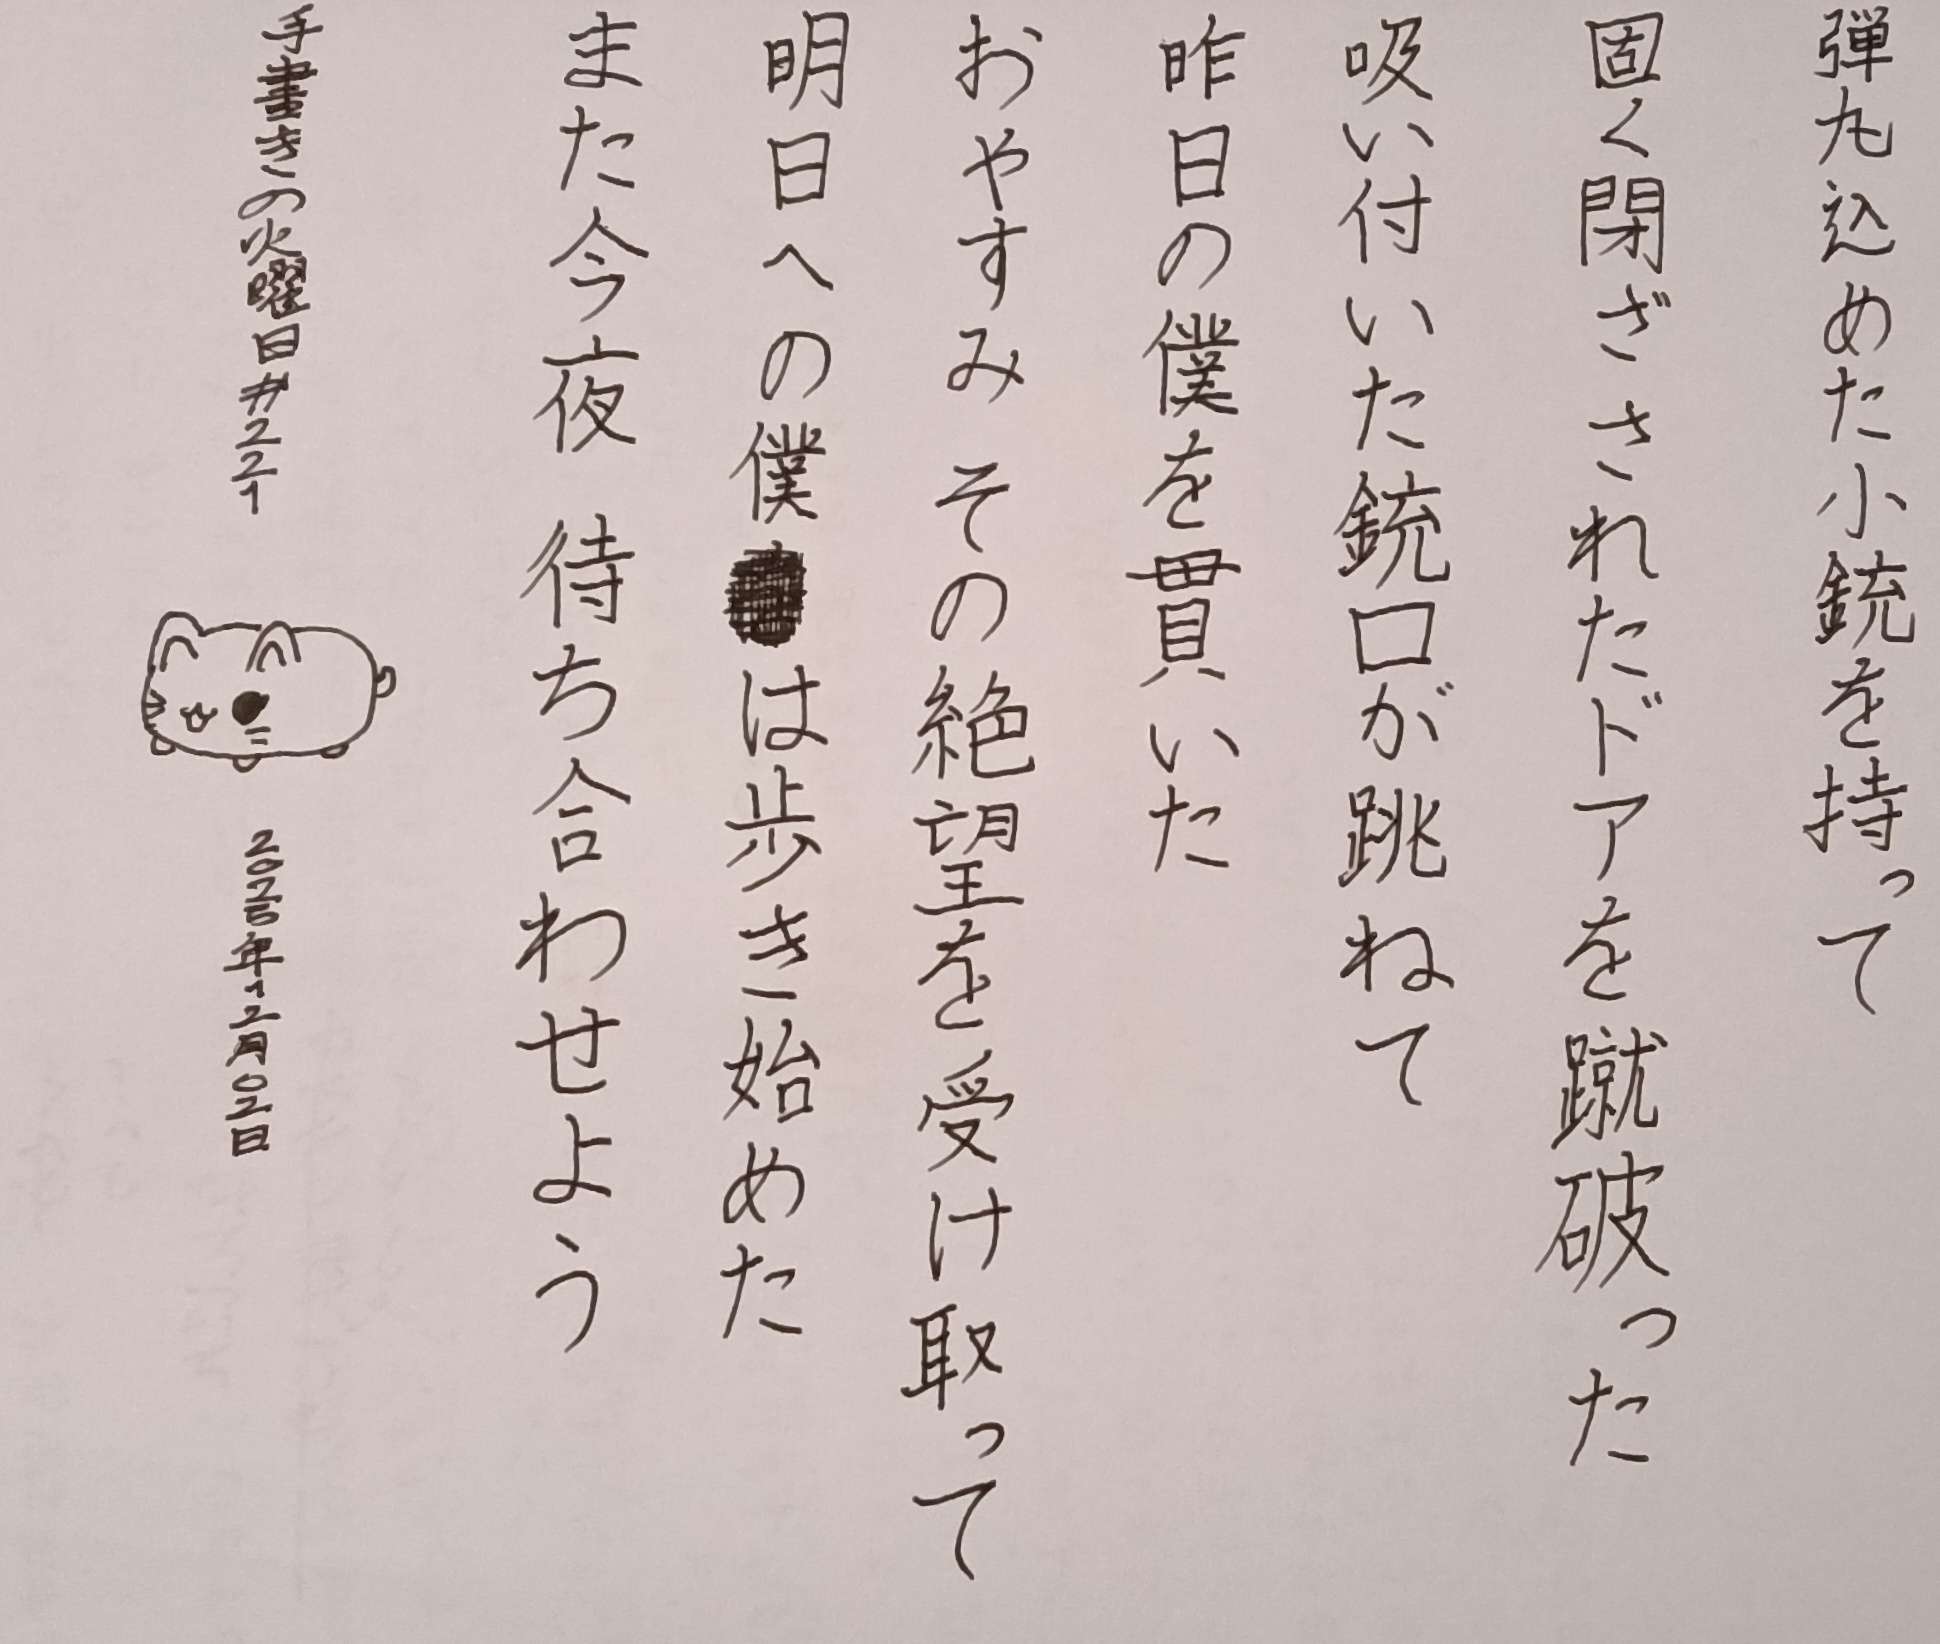 弾丸込めた小銃を持って
固く閉ざされたドアを蹴破った
吸い付いた銃口が跳ねて
昨日の僕を貫いた
おやすみ その絶望を受け取って
明日への僕は歩き始めた
また今夜 待ち合わせよう
手書きの火曜日#221
2025年12月02日